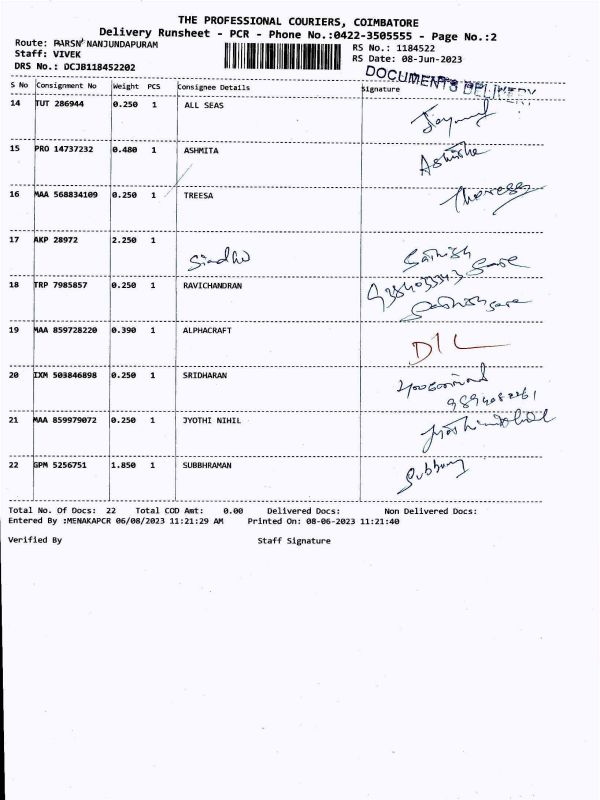 THE PROFESSIONAL COURIERS, COIMBATORE
Delivery Runsheet - PCR - Phone No.:0422-3505555 - Page No.:2
Route: PARSN NANJUNDAPURAM
RS No.: 1184522
Staff: VIVEK
RS Date: 08-Jun-2023
DRS No.: DCJB118452202
DOCUMENTS DELIVERY
S No Consignment No Weight PCS Consignee Details Signature
14 TUT 286944 0.250 1 ALL SEAS
15 PRO 14737232 0.480 1 ASHMITA Ashmitha
16 MAA 568834109 0.250 1 TREESA Theresa
17 AKP 28972 2.250 1 Sindhu Sathish
18 TRP 7985857 0.250 1 RAVICHANDRAN
19 MAA 859728220 0.390 1 ALPHACRAFT D/L
20 IXM 503846898 0.250 1 SRIDHARAN
21 MAA 859979072 0.250 1 JYOTHI NIHIL
22 GPM 5256751 1.850 1 SUBBHRAMAN Subbu
Total No. Of Docs: 22 Total COD Amt: 0.00 Delivered Docs: Non Delivered Docs:
Entered By :MENAKAPCR 06/08/2023 11:21:29 AM Printed On: 08-06-2023 11:21:40
Verified By Staff Signature